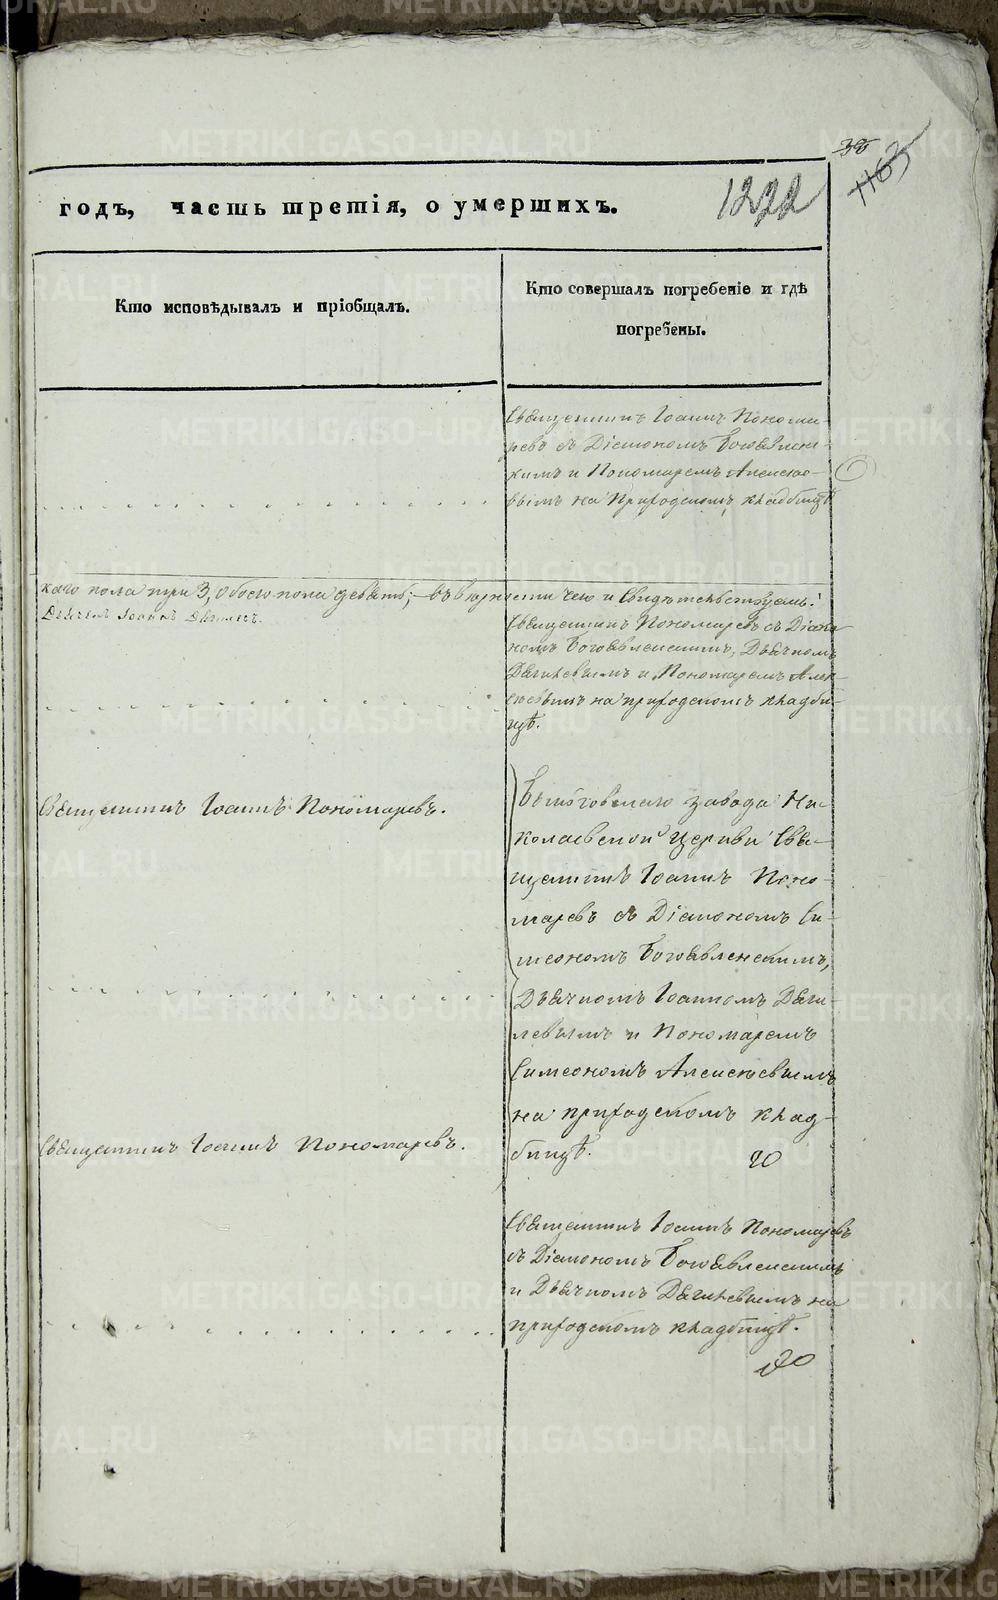 38
1163
годъ, часть третія, о умершихъ.
1222
Кто исповѣдывалъ и пріобщалъ.
Кто совершалъ погребеніе и гдѣ
погребены.
Священникъ Іоаннъ Понома-
ревъ съ Діакономъ Богоявленс-
кимъ и Пономаремъ Алексѣе-
вымъ на Приходскомъ кладбищѣ
каго пола три 3, обоего пола девять; въ вѣрности чего и свидѣтельствуемъ:
Священникъ Пономаревъ съ Діако-
номъ Богоявленскимъ, Дьячкомъ
Дягилевымъ и Пономаремъ Алек-
сѣевымъ на приходскомъ кладби-
щѣ.
Священникъ Іоаннъ Пономаревъ.
завода Ни-
колаевской Церкви Свя-
щенникъ Іоаннъ Поно-
маревъ съ Діакономъ Си-
меономъ Богоявленскимъ,
Дьячкомъ Іоанномъ Дяги-
левымъ и Пономаремъ
Симеономъ Алексѣевымъ
на приходскомъ клад-
бищѣ.
Священникъ Іоаннъ Пономаревъ.
Священникъ Іоаннъ Пономаревъ
съ Діакономъ Богоявленскимъ
и Дьячкомъ Дягилевымъ на
приходскомъ кладбищѣ.
METRIKI.GASO-URAL.RU